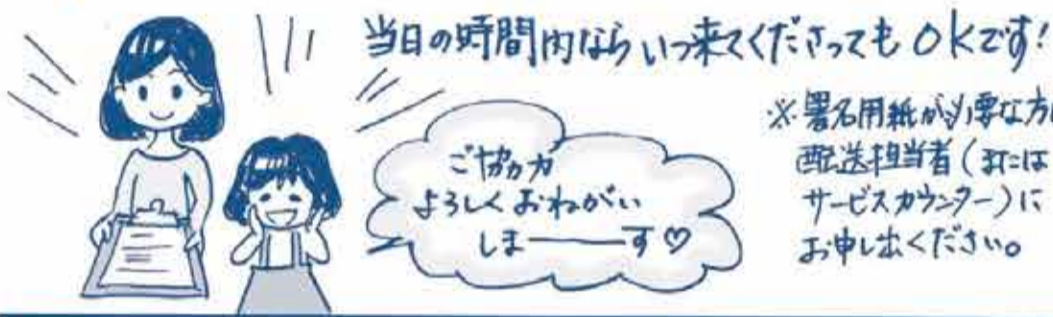 当日の時間内ならいつ来てくださってもOKです!
ご協力
よろしくおねがい
しま――――す♡
※署名用紙が必要な方は
配送担当者(または
サービスカウンター)に
お申し出ください。